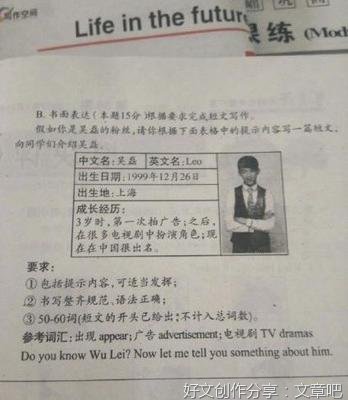 写作空间
Life in the futur
课练 (Mod
B. 书面表达(本题15分)根据要求完成短文写作。
假如你是吴磊的粉丝,请你根据下面表格中的提示内容写一篇短文,
向同学们介绍吴磊。
中文名:吴磊 英文名:Leo
出生日期:1999年12月26日
出生地:上海
成长经历:
3岁时,第一次拍广告;之后,
在很多电视剧中扮演角色;现
在在中国很出名。
要求:
①包括提示内容,可适当发挥;
②书写整齐规范、语法正确;
③50-60词(短文的开头已给出;不计入总词数)。
参考词汇:出现 appear;广告 advertisement;电视剧 TV dramas
Do you know Wu Lei? Now let me tell you something about him.
好文创作分享:文章吧